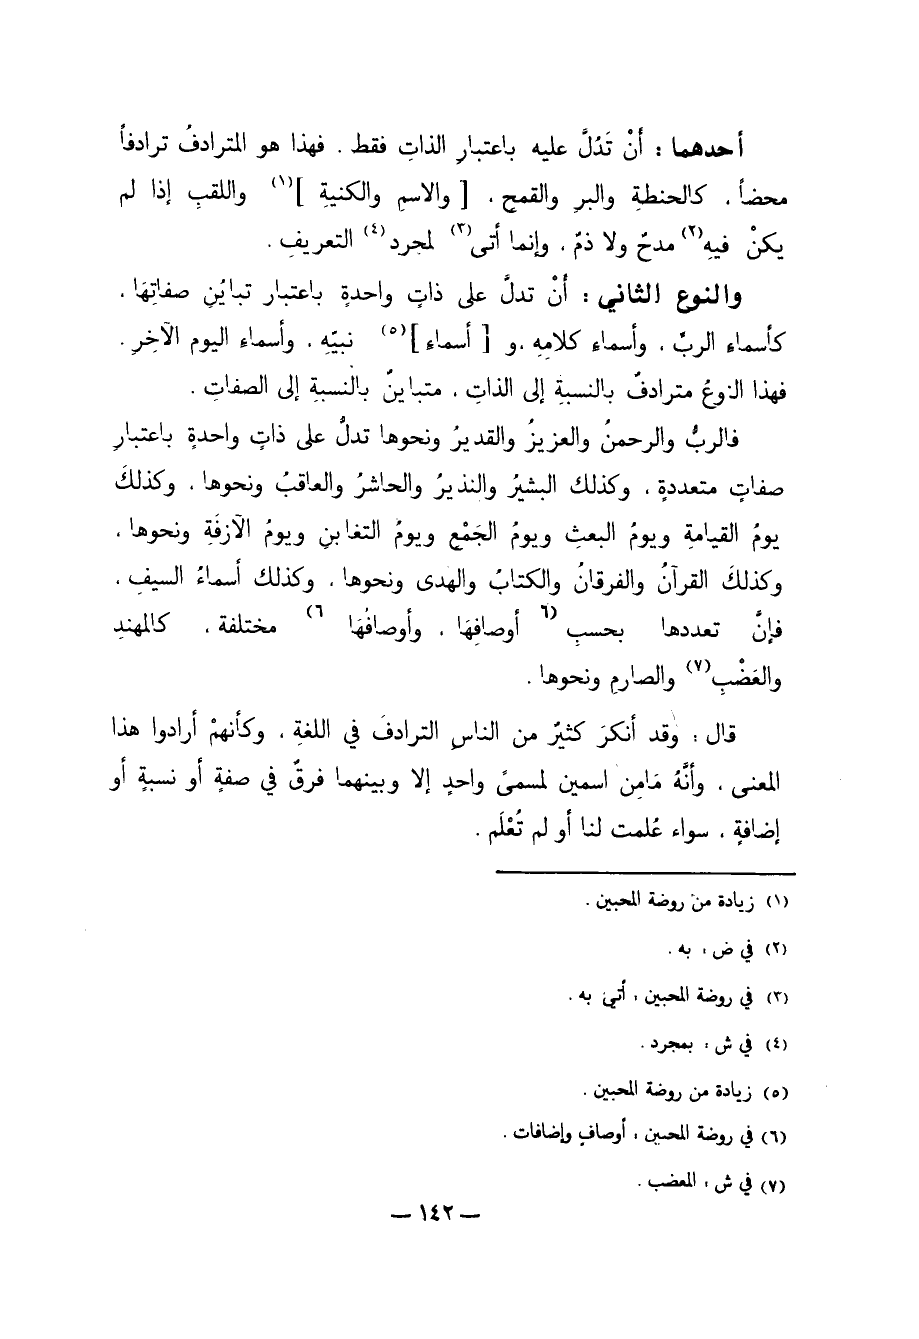 أحدهما : أنْ تَدُلَّ عليه باعتبارِ الذاتِ فقط . فهذا هو المترادفُ ترادفاً
محضاً ، كالحنطةِ والبرِ والقمحِ ، [ والاسمِ والكنيةِ ](١) واللقبِ إذا لم
يكنْ فيهِ(٢) مدحٌ ولا ذمٌ ، وإنما أتى(٣) لمجردِ(٤) التعريفِ .
والنوع الثاني : أنْ تدلَّ على ذاتٍ واحدةٍ باعتبار تبايُنِ صفاتهَا ،
كأسماءِ الربِّ ، وأسماءِ كلامِهِ ،و [ أسماءِ ](٥) نبيّهِ ، وأسماءِ اليومِ الآخِرِ .
فهذا النوعُ مترادفٌ بالنسبةِ إلى الذاتِ ، متباينٌ بالنسبةِ إلى الصفاتِ .
فالربُّ والرحمنُ والعزيزُ والقديرُ ونحوها تدلُّ على ذاتٍ واحدةٍ باعتبارِ
صفاتٍ متعددةٍ ، وكذلك البشيرُ والنذيرُ والحاشرُ والعاقبُ ونحوها ، وكذلكَ
يومُ القيامةِ ويومُ البعثِ ويومُ الجَمْعِ ويومُ التغابنِ ويومُ الآزفَةِ ونحوها ،
وكذلكَ القرآنُ والفرقانُ والكتابُ والهدى ونحوها ، وكذلك أسماءُ السيفِ ،
فإنَّ تعددها بحسبِ (٦ أوصافِهَا ، وأوصافُهَا ٦) مختلفة ، كالمهندِ
والعَضْبِ(٧) والصارمِ ونحوها .
قال : وقد أنكرَ كثيرٌ من الناسِ الترادفَ في اللغةِ ، وكأنهمْ أرادوا هذا
المعنى ، وأنَّهُ مَامِن اسمين لمسمىً واحدٍ إلا وبينهما فرقٌ في صفةٍ أو نسبةٍ أو
إضافةٍ ، سواء عُلمت لنا أو لم تُعْلَم .
(١) زيادة من روضة المحبين .
(٢) في ض : به .
(٣) في روضة المحبين : أتيَ به .
(٤) في ش : بمجرد .
(٥) زيادة من روضة المحبين .
(٦) في روضة المحبين : أوصافٍ وإضافات .
(٧) في ش : المعضب .
— ١٤٢ —